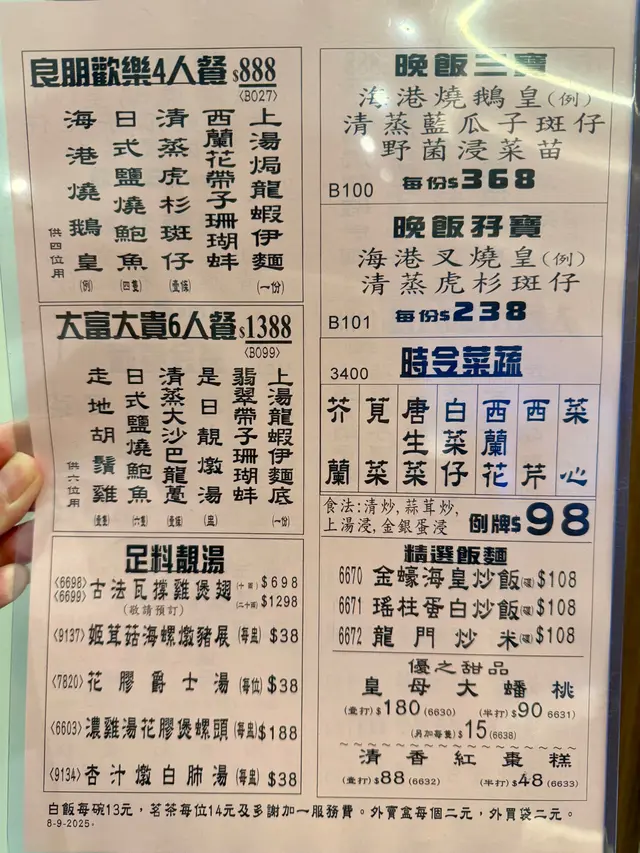 良朋歡樂4人餐$888
〈B027〉
上湯焗龍蝦伊麵(一份)
西蘭花帶子珊瑚蚌
清蒸虎杉斑仔(壹條)
日式鹽燒鮑魚(四隻)
海港燒鵝皇(例)
供四位用
大富大貴6人餐$1388
〈B099〉
上湯龍蝦伊麵底(一份)
翡翠帶子珊瑚蚌
是日靚燉湯(盅)
清蒸大沙巴龍躉(壹條)
日式鹽燒鮑魚(六隻)
走地胡鬚雞(壹隻)
供六位用
足料靚湯
〈6698〉古法瓦撐雞煲翅(十両)$698
〈6699〉(敬請預訂)(二十両)$1298
〈9137〉姬茸菇海螺燉豬展(每盅)$38
〈7820〉花膠爵士湯(每位)$38
〈6603〉濃雞湯花膠煲螺頭(每盅)$188
〈9134〉杏汁燉白肺湯(每盅)$38
晚飯三寶
海港燒鵝皇(例)
清蒸藍瓜子斑仔
野菌浸菜苗
B100 每份$368
晚飯孖寶
海港叉燒皇(例)
清蒸虎杉斑仔
B101 每份$238
3400 時令菜蔬
芥蘭 莧菜 唐生菜 白菜仔 西蘭花 西芹 菜心
食法:清炒,蒜茸炒,
上湯浸,金銀蛋浸 例牌$98
精選飯麵
6670 金蠔海皇炒飯(碟)$108
6671 瑤柱蛋白炒飯(碟)$108
6672 龍門炒米(碟)$108
優之甜品
皇母大蟠桃
(壹打)$180(6630) (半打)$90 6631)
(另加每隻)$15(6638)
清香紅棗糕
(壹打)$88(6632) (半打)$48(6633)
白飯每碗13元,茗茶每位14元及多謝加一服務費。外賣盒每個二元,外買袋二元。
8-9-2025